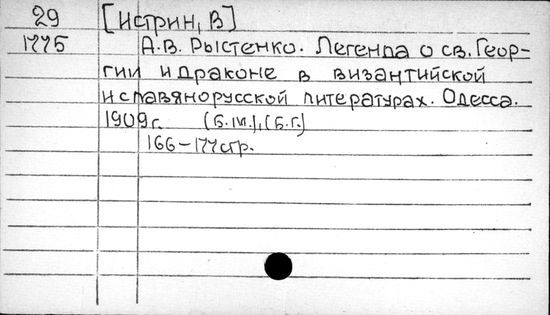 29 [Истрин, В]
1775 А.В. Рыстенко. Легенда о св. Геор-
гии и драконе в византийской
и славянорусской литературах. Одесса.
1909г. (Б.м.), (Б.г.)
166-177стр.